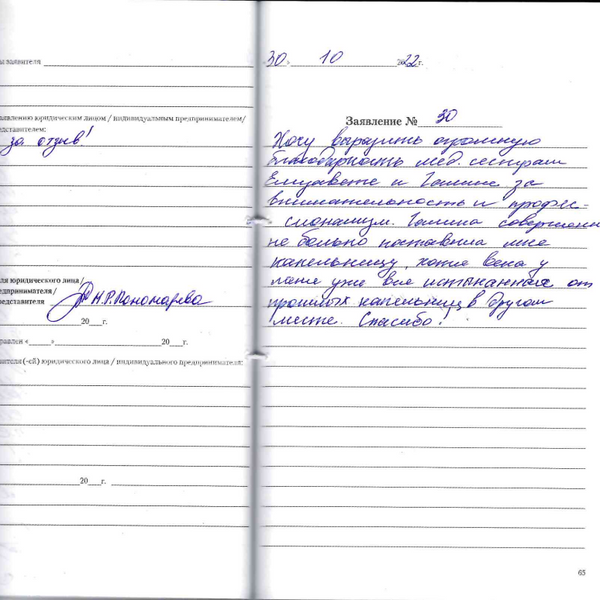 заявителя
заявлению юридическим лицом / индивидуальным предпринимателем/
представителем:
за отзыв!
юридического лица /
предпринимателя /
представителя Н.Р. Пономарева
20 г.
«        » 20 г.
(-ей) юридического лица / индивидуального предпринимателя:
20 г.
30 10 2022 г.
Заявление № 30
Хочу выразить огромную
благодарность мед. сестрам
Елизавете и Галине за
внимательность и профес-
сионализм. Галина совершенно
не больно поставила мне
капельницу, хотя вена у
меня уже вся истыканная от
прошлых капельниц в другом
месте. Спасибо!
65